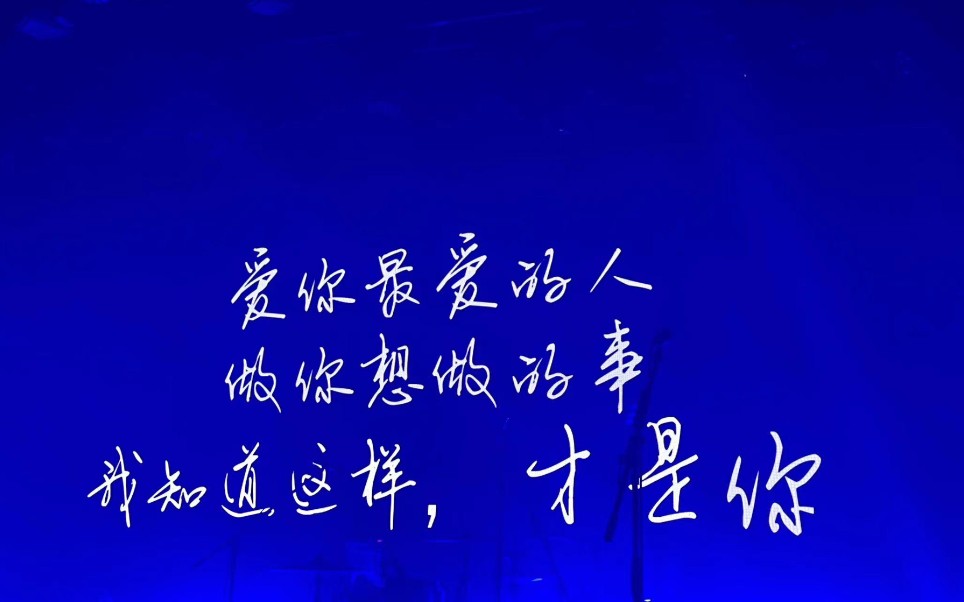 爱你最爱的人
做你想做的事
我知道这样，才是你